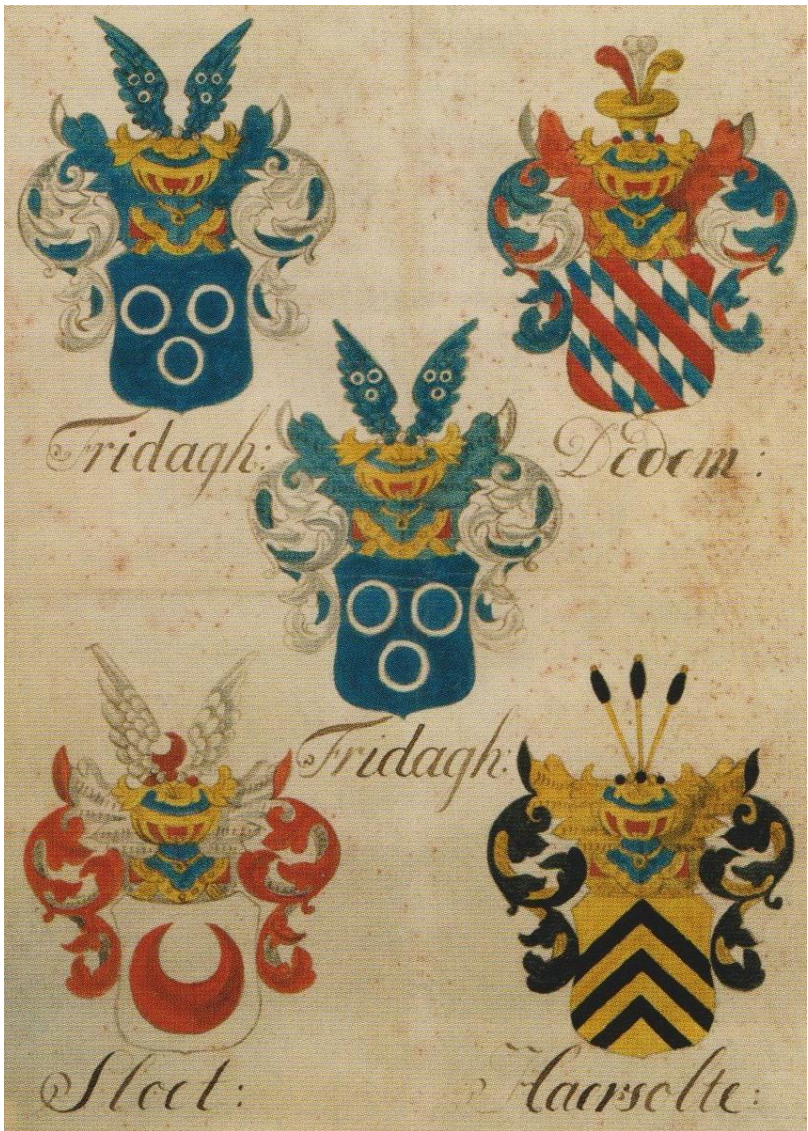 Fridagh:
Dedem:
Fridagh:
Sloet:
Haersolte: